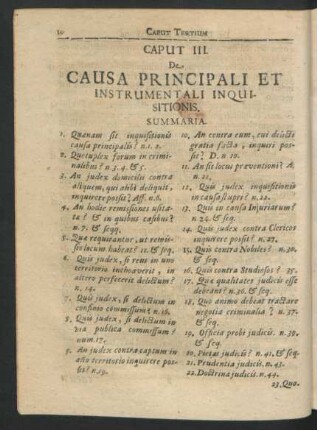 50
CAPUT TERTIUM
CAPUT III.
De
CAUSA PRINCIPALI ET
INSTRUMENTALI INQUI-
SITIONIS.
SUMMARIA.
1. Quanam sit inquisitionis
causa principalis? n.1. 2.
2. Quotuplex forum in crimi-
nalibus? n. 3. 4. & 5.
3. An judex domicilii contra
aliquem, qui alibi deliquit,
inquirere possit? Aff. n. 6.
4. An hodie remissiones usita-
ta? & in quibus casibus?
n. 7. & seqq.
5. Qua requirantur, ut remis-
sio locum habeat? 11. & seq.
6. Quis judex, si reus in uno
territorio inchoaverit, in
altero perfecerit delictum?
n. 14.
7. Quis judex, si delictum in
confinio commissum? n. 16.
8. Quis judex, si delictum in
via publica commissum?
num. 17.
9. An judex contra captum in
alio territorio inquirere pos-
sit? n. 19.
10. An contra eum, cui delicti
gratia facta, inquiri pos-
sit? D. n. 20.
11. An sit locus praeventioni? A.
n. 21.
12. Quis judex inquisitionis
in causa stupri? n. 22.
13. Quis in causa Injuriarum?
n. 24. & seq.
14. Quis judex contra Clericos
inquirere possit? n. 27.
15. Quis contra Nobiles? n. 30.
& seq.
16. Quis contra Studiosos? 35.
17. Qua qualitates judicis esse
debeant? n. 36. & seq.
18. Quo animo debeat tractare
negotia criminalia? n. 37.
& seq.
19. Officia probi judicis. n. 39.
& seq.
20. Pietas judicis? n. 41. & seq.
21. Prudentia judicis. n. 43.
22. Doctrina judicis. n. 44.
23. Quo.